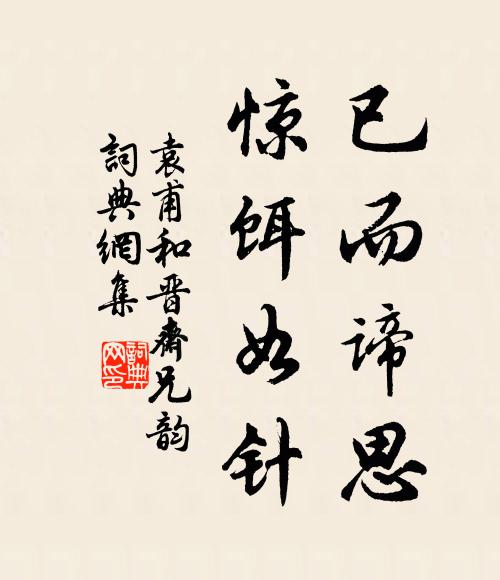 已而谛思
惊饵如针
袁甫和晋斋兄韵
詞典網集
詞典網印